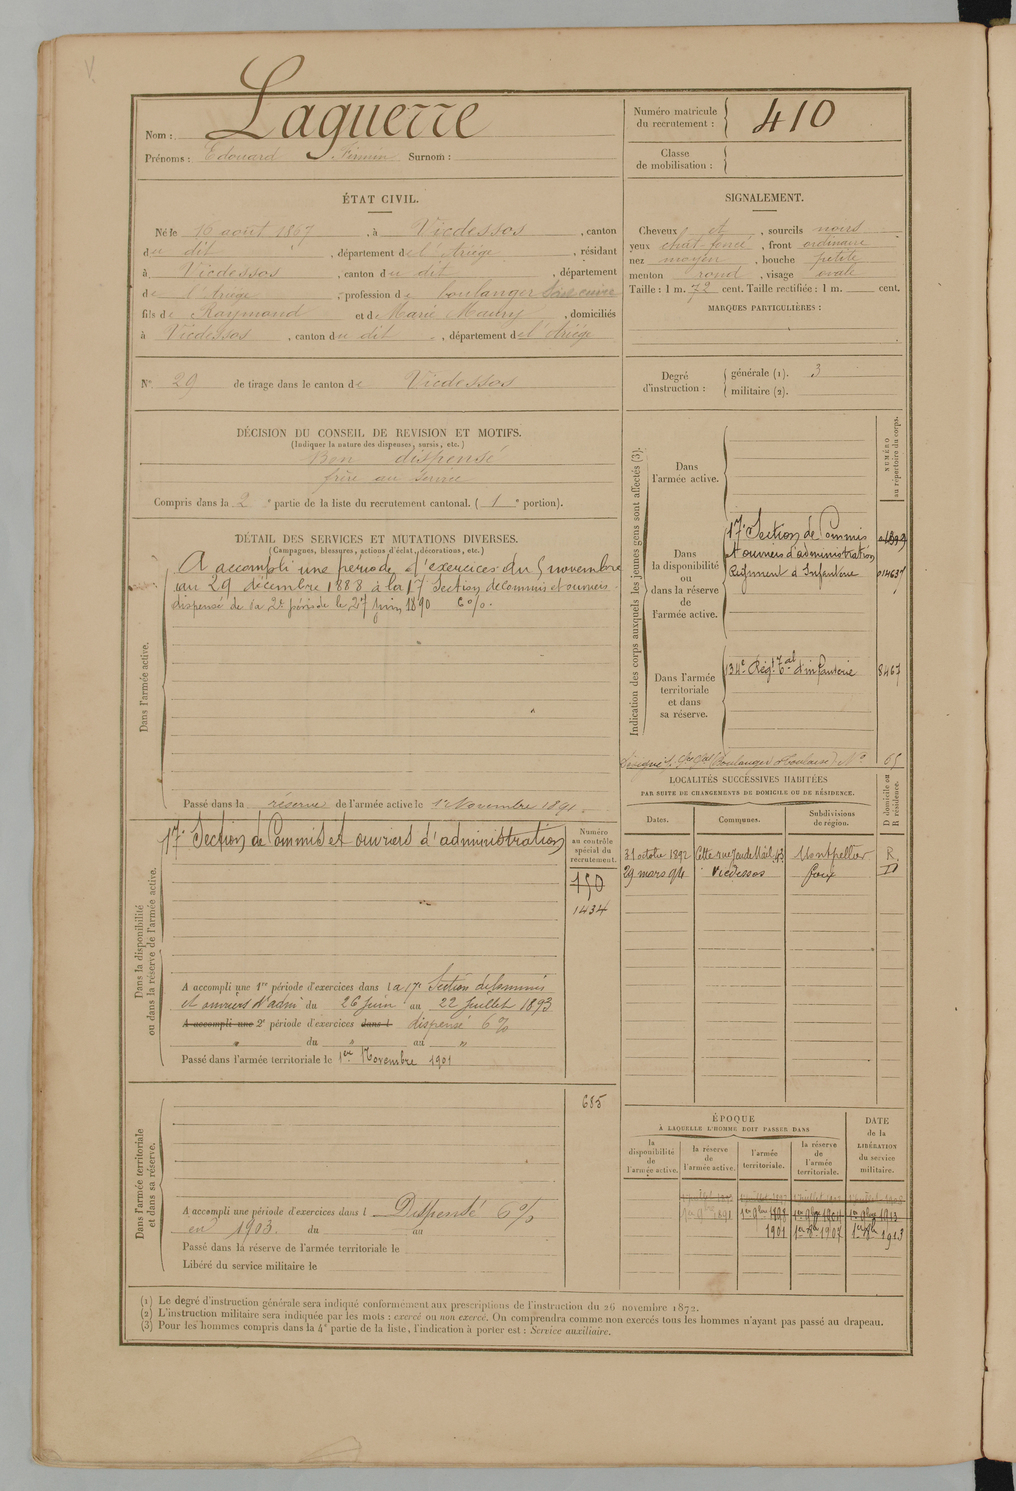 Nom : Laguerre
Prénoms : Edouard Firmin Surnom :
Numéro matricule du recrutement : 410
Classe de mobilisation :
ÉTAT CIVIL.
Né le 10 août 1867, à Vicdessos, canton
du dit, département de l'Ariège, résidant
à Vicdessos, canton du dit, département
de l'Ariège, profession de boulanger
fils de Raymond et de Marie Maury, domiciliés
à Vicdessos, canton du dit, département de l'Ariège
N° 29 de tirage dans le canton de Vicdessos
SIGNALEMENT.
Cheveux et, sourcils noirs
yeux chat. foncé, front ordinaire
nez moyen, bouche petite
menton rond, visage ovale
Taille : 1 m. 72 cent. Taille rectifiée : 1 m. cent.
MARQUES PARTICULIÈRES :
Degré d'instruction :
générale (1). 3
militaire (2).
DÉCISION DU CONSEIL DE REVISION ET MOTIFS.
(Indiquer la nature des dispenses, sursis, etc.)
Bon dispensé
frère au service
Compris dans la 2e partie de la liste du recrutement cantonal. ( 1e portion).
DÉTAIL DES SERVICES ET MUTATIONS DIVERSES.
(Campagnes, blessures, actions d'éclat, décorations, etc.)
Dans l'armée active.
A accompli une période d'exercices du 5 novembre
au 29 décembre 1888 à la 17e Section de commis et ouvriers
dispensé de la 2e période le 27 juin 1890 6 o/o.
Passé dans la réserve de l'armée active le 1er Novembre 1891.
Dans la disponibilité ou dans la réserve de l'armée active.
17e Section de Commis et ouvriers d'administration
Numéro au contrôle spécial du recrutement.
150
1434
A accompli une 1re période d'exercices dans la 17e Section de Commis
et ouvriers d'admon du 26 Juin au 22 Juillet 1893
A accompli une 2e période d'exercices dans l dispensé 6 %
" du " au "
Passé dans l'armée territoriale le 1er Novembre 1901
Dans l'armée territoriale et dans sa réserve.
685
A accompli une période d'exercices dans l Dispensé 6 %
en 1903. du au
Passé dans la réserve de l'armée territoriale le
Libéré du service militaire le
Indication des corps auxquels les jeunes gens sont affectés (3).
NUMÉRO au répertoire du corps.
Dans l'armée active.
Dans la disponibilité ou dans la réserve de l'armée active.
17e Section de Commis
et ouvriers d'administration
Régiment d'Infanterie 014637
Dans l'armée territoriale et dans sa réserve.
134e Régt Tal d'infanterie 8467
65
LOCALITÉS SUCCESSIVES HABITÉES
PAR SUITE DE CHANGEMENTS DE DOMICILE OU DE RÉSIDENCE.
Dates. Communes. Subdivisions de région. D domicile ou R résidence.
31 octobre 1892 Cette rue Montpellier R.
29 mars 94 Vicdessos Foix D
ÉPOQUE
À LAQUELLE L'HOMME DOIT PASSER DANS
la disponibilité de l'armée active.
la réserve de l'armée active.
l'armée territoriale.
la réserve de l'armée territoriale.
DATE de la LIBÉRATION du service militaire.
1er 9bre 1891
1901
(1) Le degré d'instruction générale sera indiqué conformément aux prescriptions de l'instruction du 26 novembre 1872.
(2) L'instruction militaire sera indiquée par les mots : exercé ou non exercé. On comprendra comme non exercés tous les hommes n'ayant pas passé au drapeau.
(3) Pour les hommes compris dans la 4e partie de la liste, l'indication à porter est : Service auxiliaire.